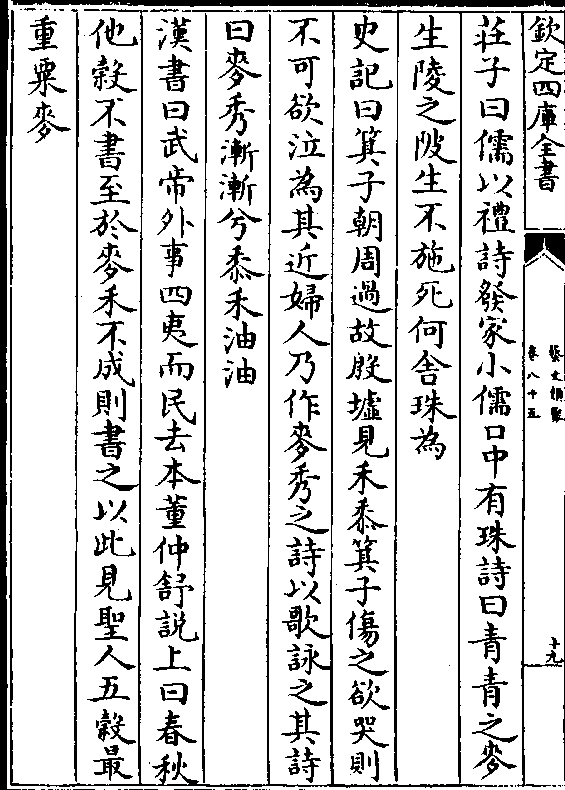 欽定四庫全書
藝文類聚
卷八十五
十九
莊子曰儒以禮詩發冢小儒口中有珠詩曰青青之麥
生陵之陂生不施死何含珠為
史記曰箕子朝周過故殷墟見禾黍箕子傷之欲哭則
不可欲泣為其近婦人乃作麥秀之詩以歌詠之其詩
曰麥秀漸漸兮黍禾油油
漢書曰武帝外事四夷而民去本董仲舒說上曰春秋
他榖不書至於麥禾不成則書之以此見聖人五榖最
重粟麥